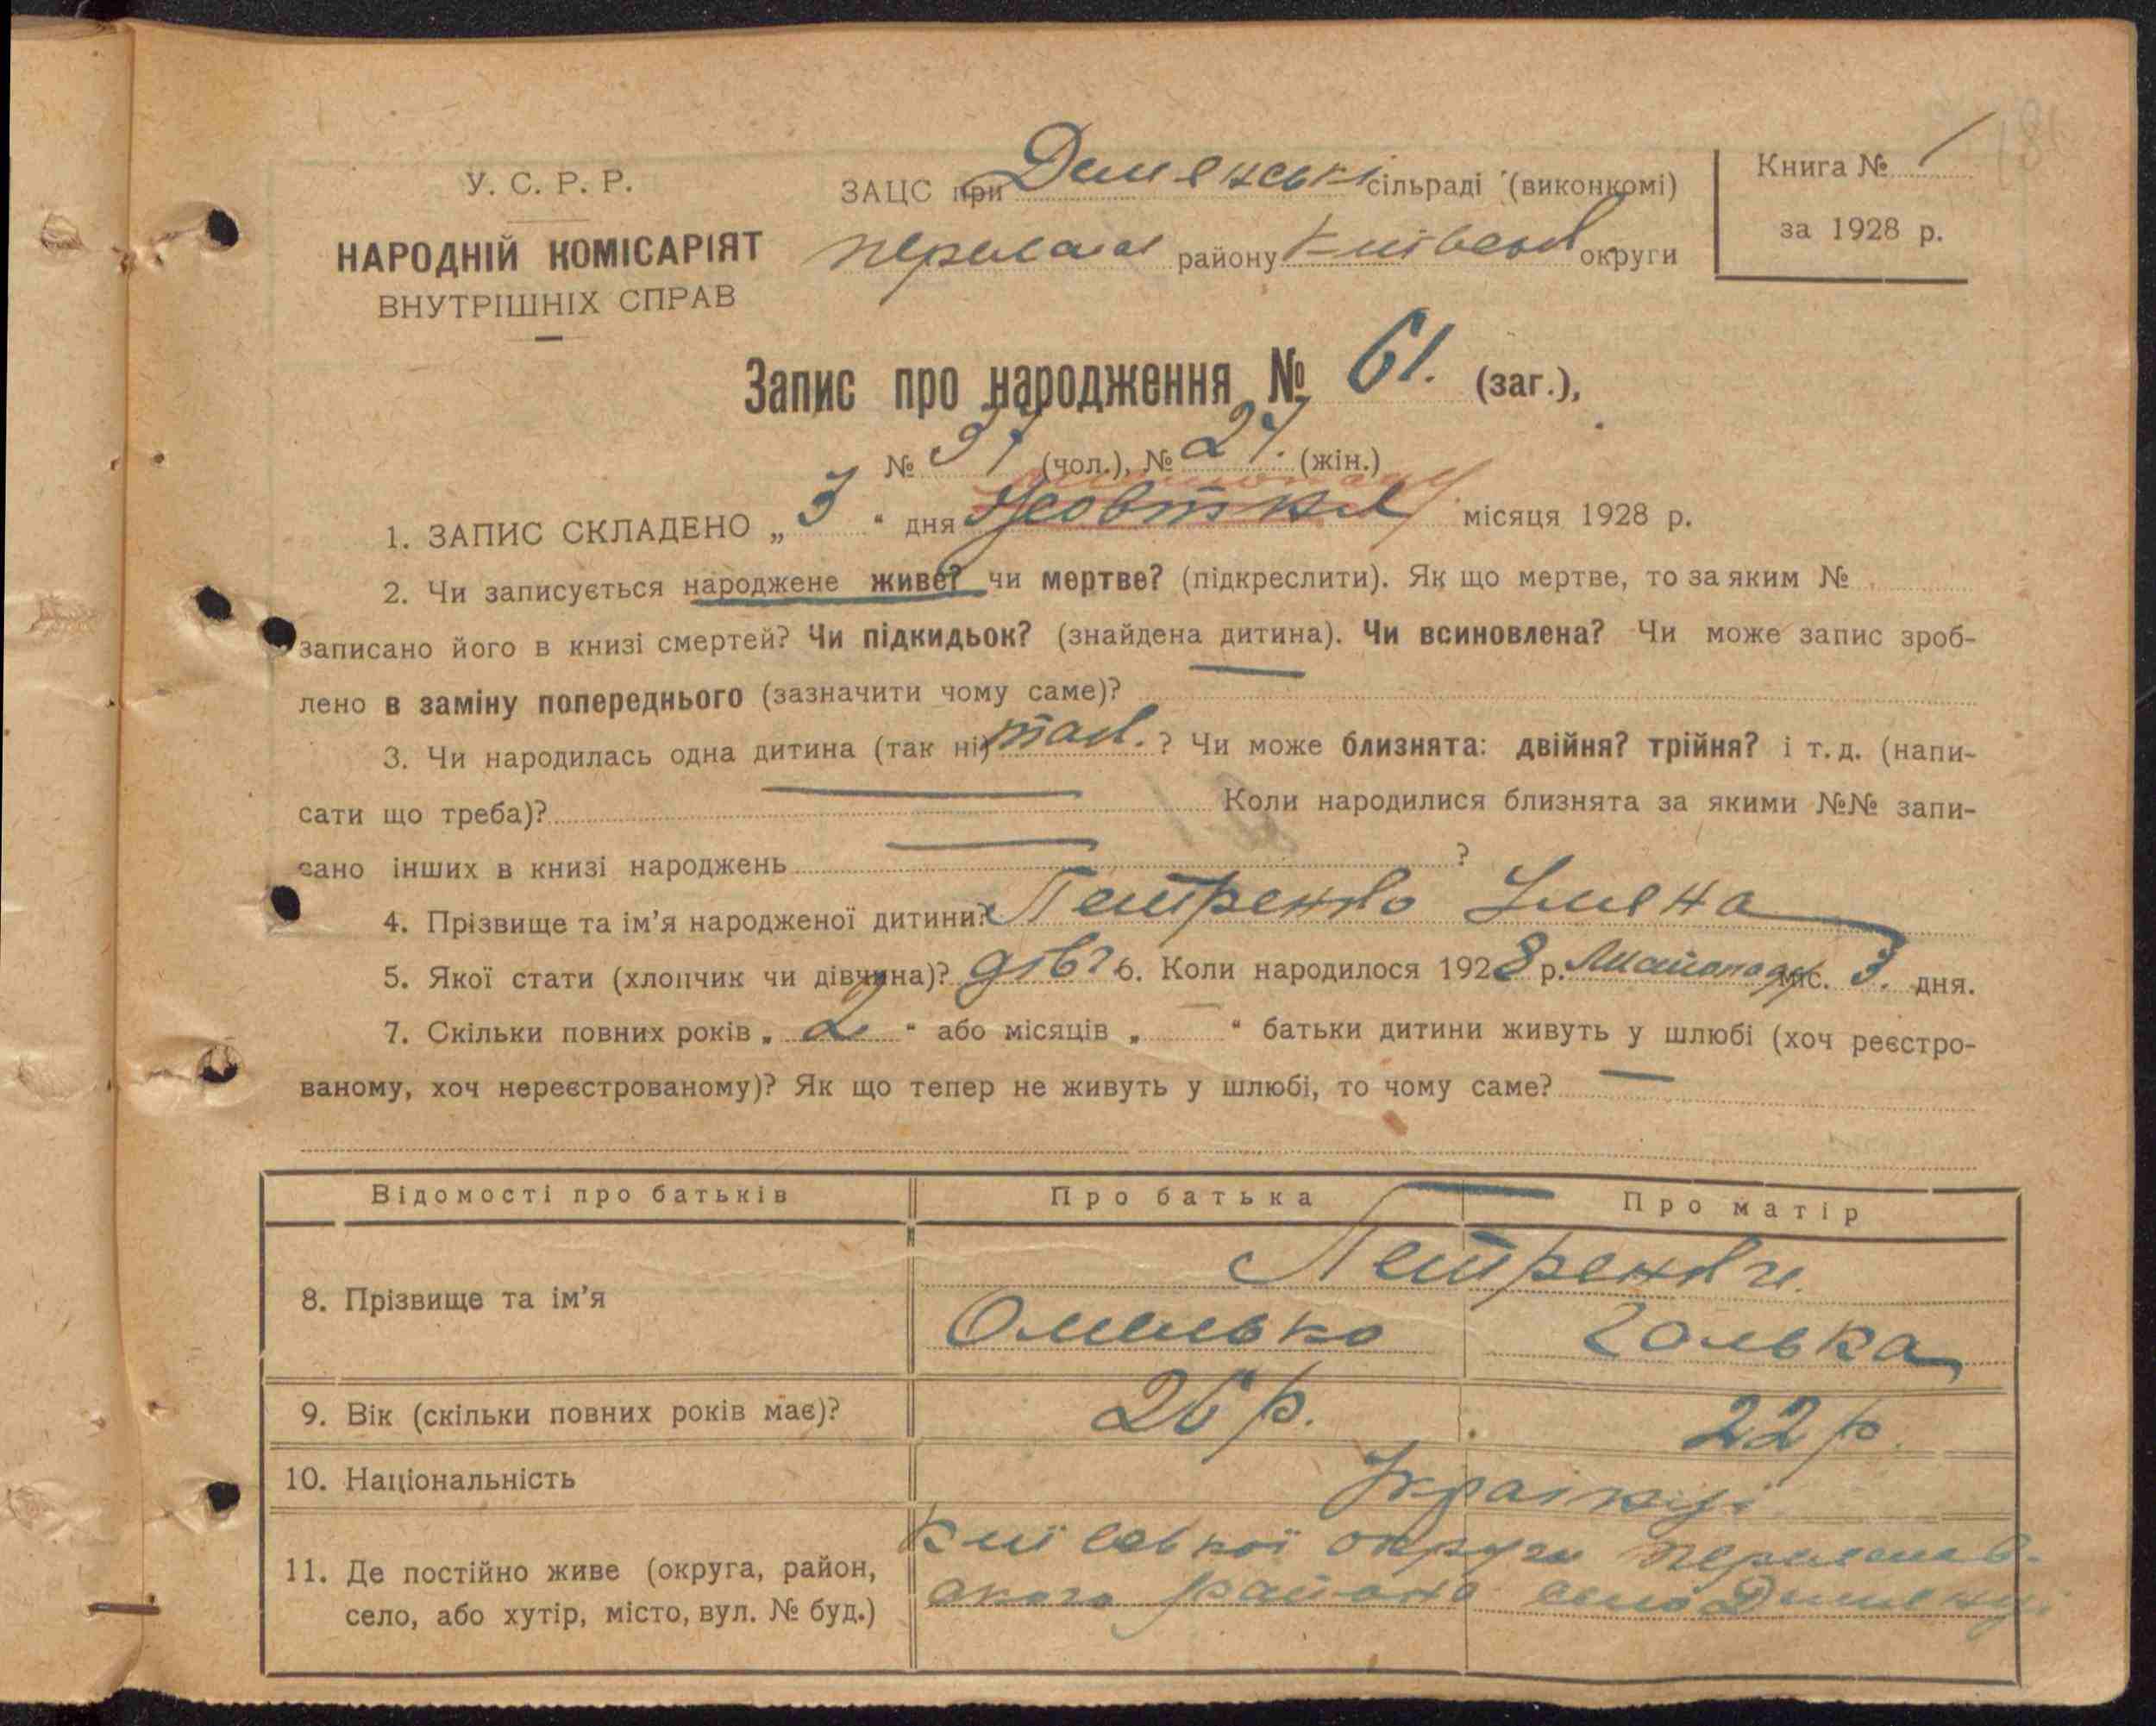 У. С. Р. Р.
НАРОДНІЙ КОМІСАРІЯТ
ВНУТРІШНІХ СПРАВ
ЗАЦС при Демянські сільраді (виконкомі)
району Київської округи
Книга № 1
за 1928 р.
Запис про народження № 61. (заг.),
№ 37 (чол.), № 24. (жін.)
листопаду
1. ЗАПИС СКЛАДЕНО „ 3 “ дня Жовтня місяця 1928 р.
2. Чи записується народжене живе? чи мертве? (підкреслити). Як що мертве, то за яким №
записано його в книзі смертей? Чи підкидьок? (знайдена дитина). Чи всиновлена? Чи може запис зроб-
лено в заміну попереднього (зазначити чому саме)?
3. Чи народилась одна дитина (так ні) так. ? Чи може близнята: двійня? трійня? і т. д. (напи-
сати що треба)? Коли народилися близнята за якими №№ запи-
сано інших в книзі народжень ?
4. Прізвище та ім’я народженої дитини? Петренко
5. Якої стати (хлопчик чи дівчина)? дівч 6. Коли народилося 1928 р. Листопаду міс. 3. дня.
7. Скільки повних років „ 2 “ або місяців „ “ батьки дитини живуть у шлюбі (хоч реєстро-
ваному, хоч нереєстрованому)? Як що тепер не живуть у шлюбі, то чому саме?
Відомості про батьків Про батька Про матір
Петренки
8. Прізвище та ім’я Омелько Галька
9. Вік (скільки повних років має)? 26 р. 22 р.
10. Національність Українці
11. Де постійно живе (округа, район, Київської округи Переяслав-
село, або хутір, місто, вул. № буд.) ського району село Демянці